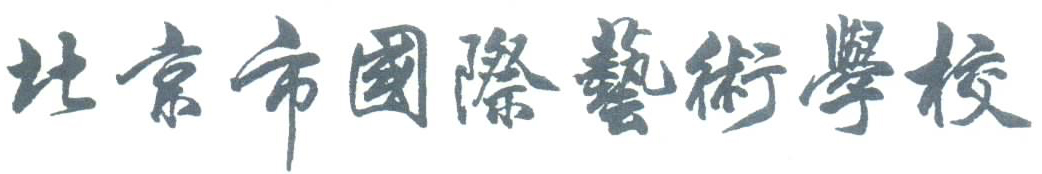 北京市國際藝術學校